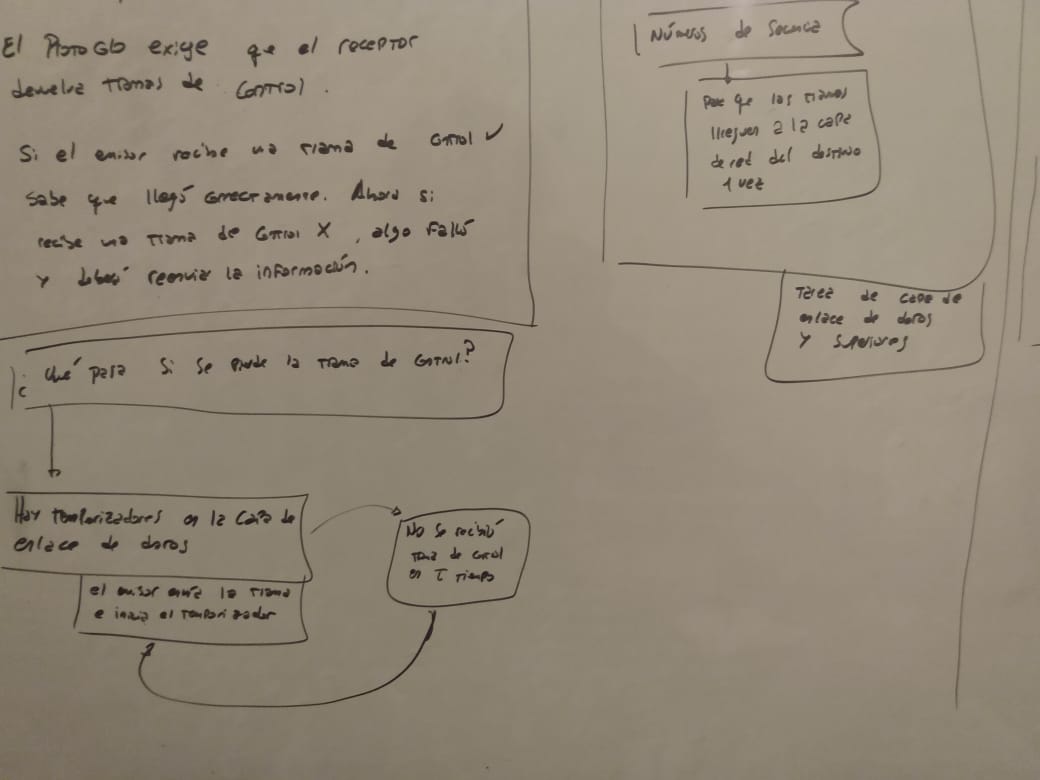 El Protocolo exige que el receptor
devuelva tramas de control.
Si el emisor recibe una trama de control ✓
sabe que llegó correctamente. Ahora si
recibe una trama de control X, algo falló
y deberá reenviar la información.
¿Qué pasa si se pierde la trama de control?
Hay temporizadores en la capa de
enlace de datos
el emisor envía la trama
e inicia el temporizador
No se recibió
trama de control
en T tiempo
Números de Secuencia
Para que las tramas
lleguen a la capa
de red del destino
1 vez
Tarea de capa de
enlace de datos
y superiores